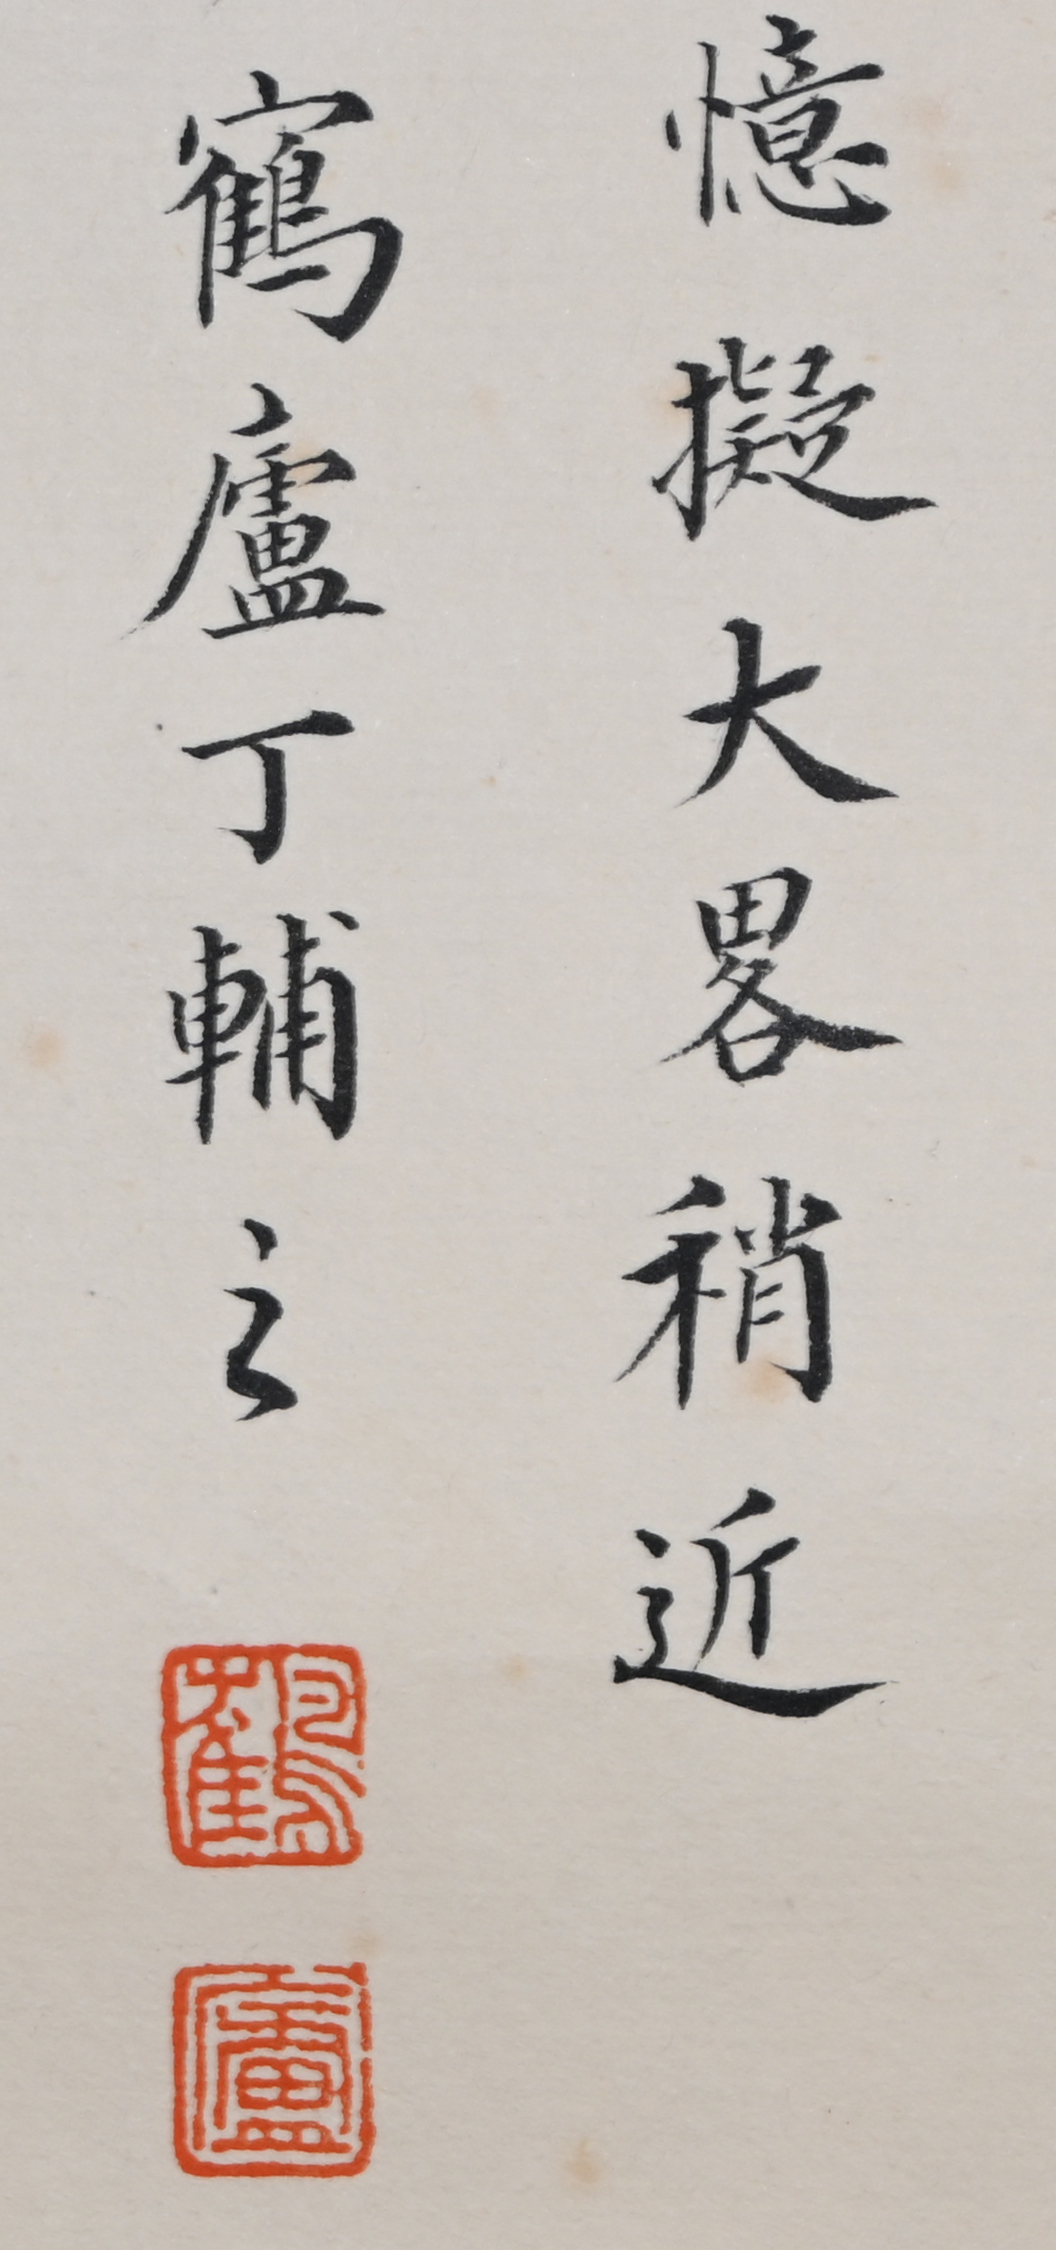 憶擬大畧稍近
寉鳥廬丁輔之
鶴
廬